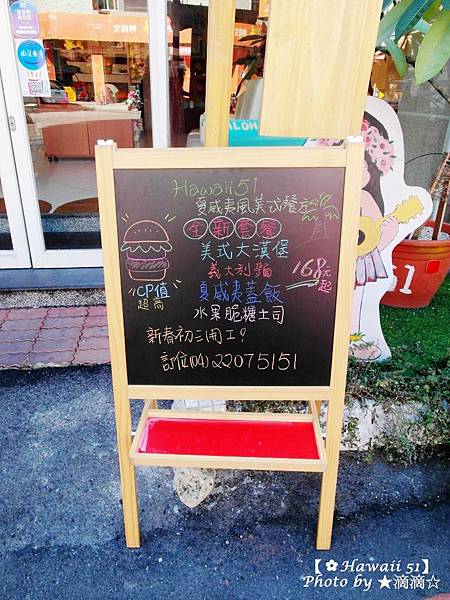 Hawaii 51
夏威夷風美式餐廳
全新套餐
美式大漢堡
義大利麵
168元起
夏威夷蓋飯
水果脆糖土司
CP值
超高
新春初二開工
訂位(04)22075151
ALOH
51
【✿Hawaii 51】
Photo by ★滴滴☆